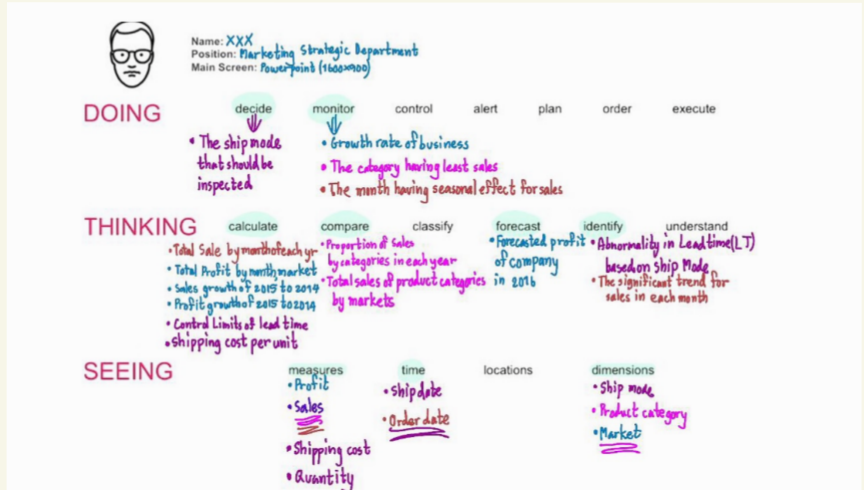 Name: XXX
Position: Marketing Strategic Department
Main Screen: PowerPoint (1600x900)
DOING
decide monitor control alert plan order execute
• The ship mode
that should be
inspected
• Growth rate of business
• The category having least sales
• The month having seasonal effect for sales
THINKING
calculate compare classify forecast identify understand
• Total Sale by month of each yr
• Total Profit by month, market
• Sales growth of 2015 to 2014
• Profit growth of 2015 to 2014
• Control Limits of lead time
• Shipping cost per unit
• Proportion of Sales
by categories in each year
• Total sales of product categories
by markets
• Forecasted profit
of company
in 2016
• Abnormality in Lead time (LT)
based on ship Mode
• The significant trend for
sales in each month
SEEING
measures time locations dimensions
• Profit
• Sales
• Shipping cost
• Quantity
• Ship date
• Order date
• Ship mode
• Product category
• Market